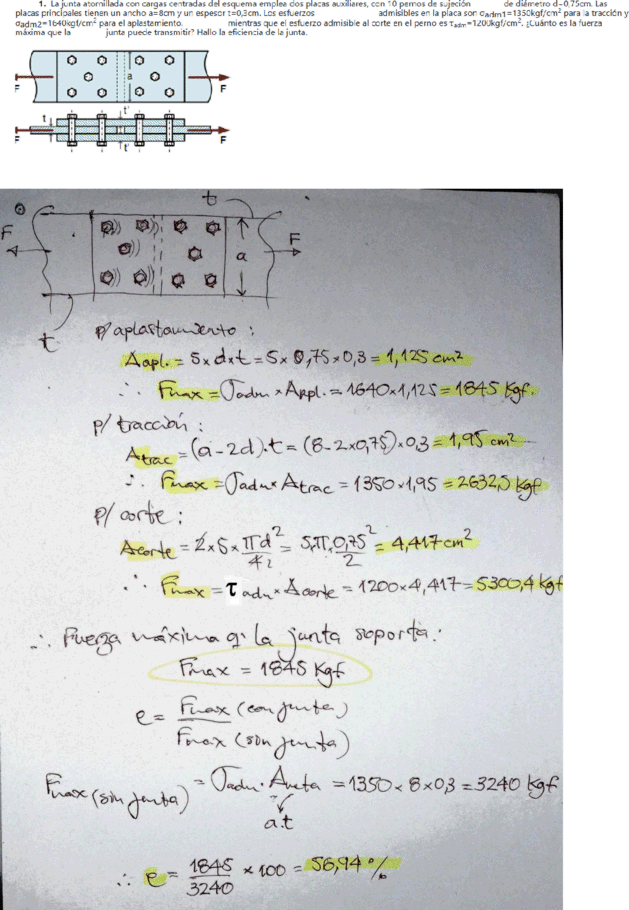 1. La junta atornillada con cargas centradas del esquema emplea dos placas auxiliares, con 10 pernos de sujeción de diámetro d=0,75cm. Las
placas principales tienen un ancho a=8cm y un espesor t=0,3cm. Los esfuerzos admisibles en la placa son σadm1=1350kgf/cm² para la tracción y
σadm2=1640kgf/cm² para el aplastamiento. mientras que el esfuerzo admisible al corte en el perno es τadm=1200kgf/cm². ¿Cuánto es la fuerza
máxima que la junta puede transmitir? Hallo la eficiencia de la junta.
F a F
t t'
F t' F
t
F a F
t
p/ aplastamiento :
Aapl. = 5xdxt = 5x 0,75 x 0,3 = 1,125 cm²
∴ Fmax = σadm x Aapl. = 1640x1,125 = 1845 Kgf.
p/ tracción :
Atrac = (a-2d).t = (8-2x0,75)x0,3 = 1,95 cm²
∴ Fmax = σadm x Atrac = 1350x1,95 = 2632,5 Kgf
p/ corte :
Acorte = 2x5x πd²/4 = 5.π.0,75²/2 = 4,417 cm²
∴ Fmax = τadm x Acorte = 1200x4,417 = 5300,4 kgf
∴ Fuerza máxima q' la junta soporta:
Fmax = 1845 Kgf
e = Fmax (con junta)
Fmax (sin junta)
Fmax (sin junta) = σadm . Aneta = 1350 x 8 x 0,3 = 3240 Kgf
a.t
∴ e = 1845/3240 x 100 = 56,94 %